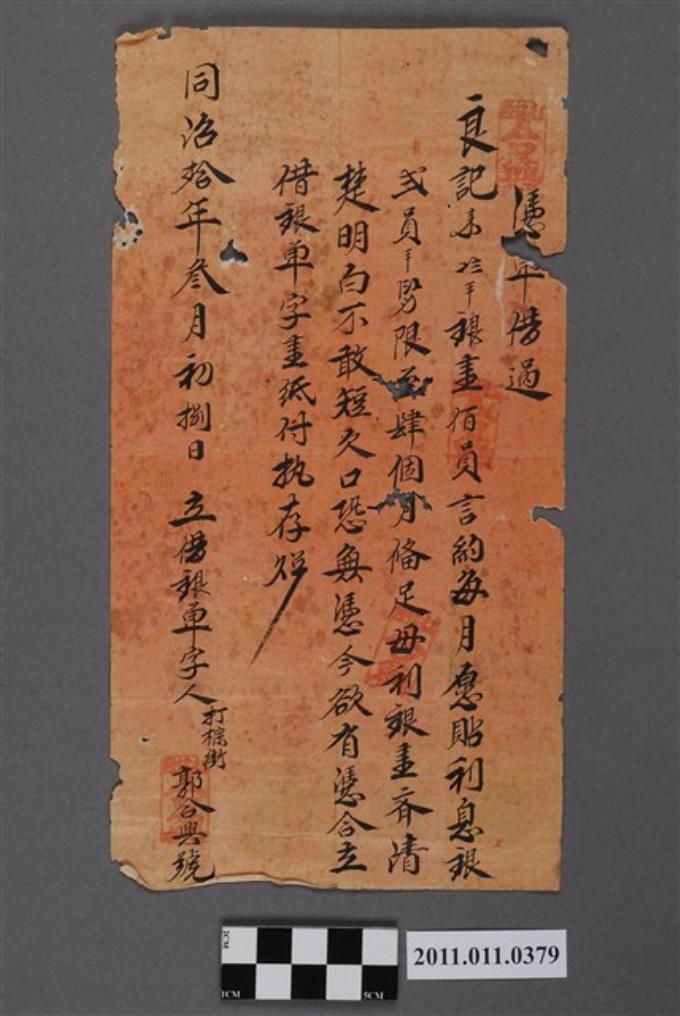 憑單借過
良記 銀壹佰員言約每月愿貼利息銀
弍員 限至肆個月俻足母利銀壹齊清
楚明白不敢短欠口恐無憑今欲有憑合立
借銀單字壹紙付执存炤
同治拾年叁月初捌日 立借銀單字人打棕街郭合興號
2CM
1CM
5CM
2011.011.0379